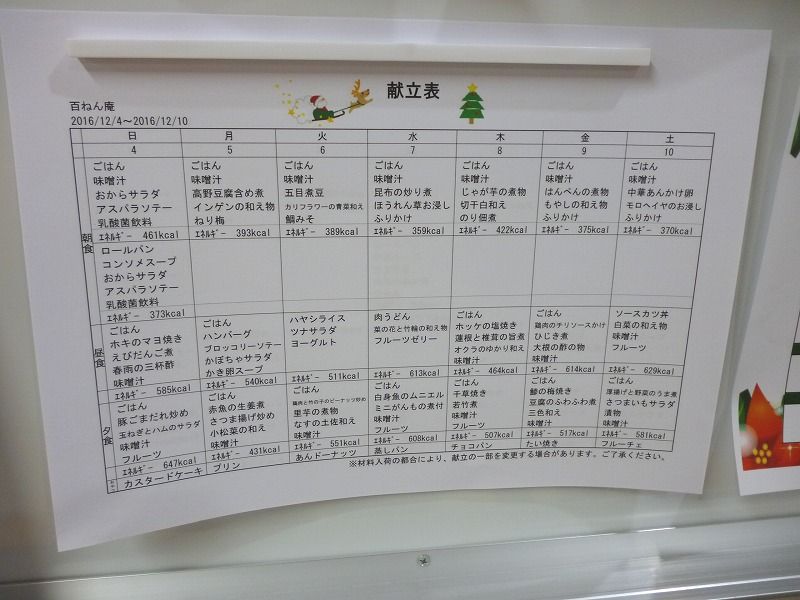 献立表
百ねん庵
2016/12/4～2016/12/10
日 月 火 水 木 金 土
4 5 6 7 8 9 10
朝食
ごはん
味噌汁
おからサラダ
アスパラソテー
乳酸菌飲料
ｴﾈﾙｷﾞｰ 461kcal
ごはん
味噌汁
高野豆腐含め煮
インゲンの和え物
ねり梅
ｴﾈﾙｷﾞｰ 393kcal
ごはん
味噌汁
五目煮豆
カリフラワーの青菜和え
鯛みそ
ｴﾈﾙｷﾞｰ 389kcal
ごはん
味噌汁
昆布の炒り煮
ほうれん草お浸し
ふりかけ
ｴﾈﾙｷﾞｰ 359kcal
ごはん
味噌汁
じゃが芋の煮物
切干白和え
のり佃煮
ｴﾈﾙｷﾞｰ 422kcal
ごはん
味噌汁
はんぺんの煮物
もやしの和え物
ふりかけ
ｴﾈﾙｷﾞｰ 375kcal
ごはん
味噌汁
中華あんかけ卵
モロヘイヤのお浸し
ふりかけ
ｴﾈﾙｷﾞｰ 370kcal
ロールパン
コンソメスープ
おからサラダ
アスパラソテー
乳酸菌飲料
ｴﾈﾙｷﾞｰ 373kcal
昼食
ごはん
ホキのマヨ焼き
えびだんご煮
春雨の三杯酢
味噌汁
ｴﾈﾙｷﾞｰ 585kcal
ごはん
ハンバーグ
ブロッコリーソテー
かぼちゃサラダ
かき卵スープ
ｴﾈﾙｷﾞｰ 540kcal
ハヤシライス
ツナサラダ
ヨーグルト
ｴﾈﾙｷﾞｰ 511kcal
肉うどん
菜の花と竹輪の和え物
フルーツゼリー
ｴﾈﾙｷﾞｰ 613kcal
ごはん
ホッケの塩焼き
蓮根と椎茸の旨煮
オクラのゆかり和え
味噌汁
ｴﾈﾙｷﾞｰ 464kcal
ごはん
鶏肉のチリソースかけ
ひじき煮
大根の酢の物
味噌汁
ｴﾈﾙｷﾞｰ 614kcal
ソースカツ丼
白菜の和え物
味噌汁
フルーツ
ｴﾈﾙｷﾞｰ 629kcal
夕食
ごはん
豚ごまだれ炒め
玉ねぎとハムのサラダ
味噌汁
フルーツ
ｴﾈﾙｷﾞｰ 647kcal
ごはん
赤魚の生姜煮
さつま揚げ炒め
小松菜の和え
味噌汁
ｴﾈﾙｷﾞｰ 431kcal
ごはん
鶏肉と竹の子のピーナッツ炒め
里芋の煮物
なすの土佐和え
味噌汁
ｴﾈﾙｷﾞｰ 551kcal
ごはん
白身魚のムニエル
ミニがんもの煮付
味噌汁
フルーツ
ｴﾈﾙｷﾞｰ 608kcal
ごはん
千草焼き
若竹煮
味噌汁
フルーツ
ｴﾈﾙｷﾞｰ 507kcal
ごはん
鯵の梅焼き
豆腐のふわふわ煮
三色和え
味噌汁
ｴﾈﾙｷﾞｰ 517kcal
ごはん
厚揚げと野菜のうま煮
さつまいもサラダ
漬物
味噌汁
ｴﾈﾙｷﾞｰ 581kcal
カスタードケーキ
プリン
あんドーナッツ
蒸しパン
チョコパン
たい焼き
フルーチェ
※材料入荷の都合により、献立の一部を変更する場合があります。ご了承ください。